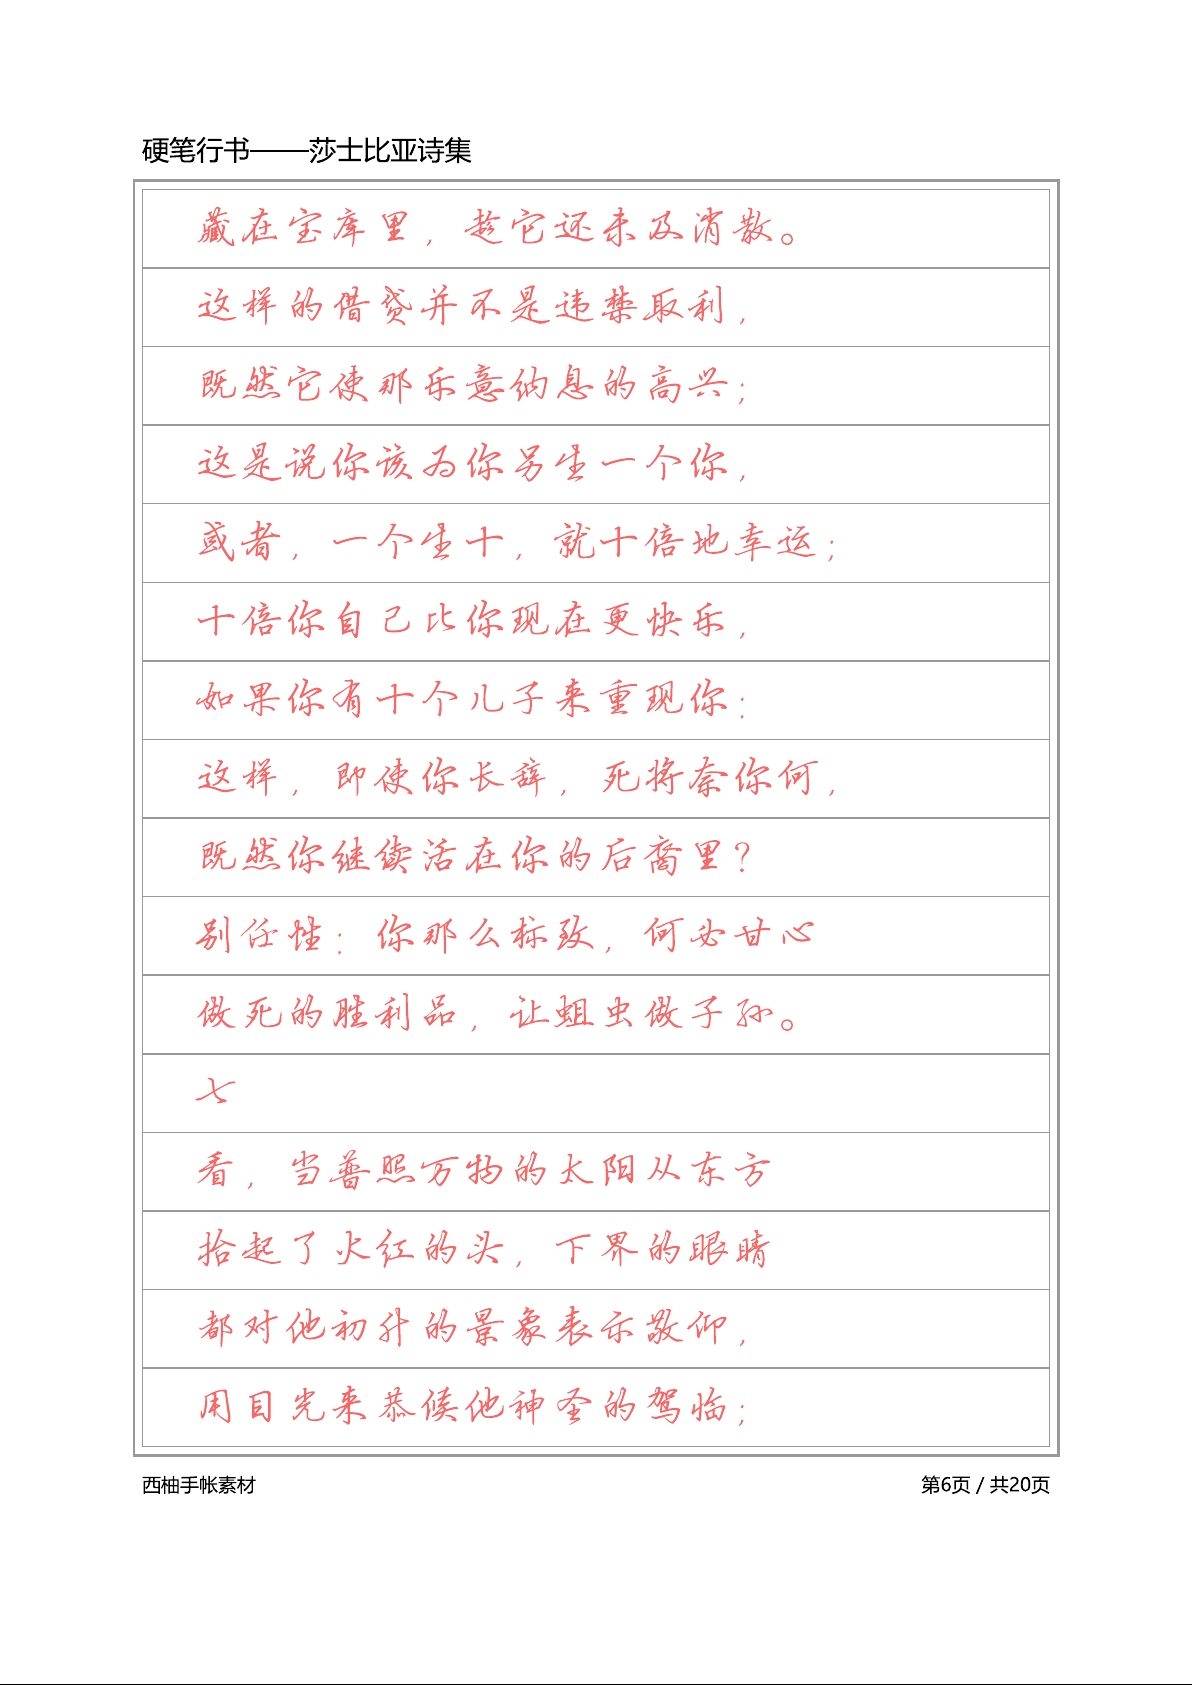 硬笔行书——莎士比亚诗集
藏在宝库里，趁它还未及消散。
这样的借贷并不是违禁取利，
既然它使那乐意纳息的高兴；
这是说你该为你另生一个你，
或者，一个生十，就十倍地幸运；
十倍你自己比你现在更快乐，
如果你有十个儿子来重现你：
这样，即使你长辞，死将奈你何，
既然你继续活在你的后裔里？
别任性：你那么标致，何必甘心
做死的胜利品，让蛆虫做子孙。
七
看，当普照万物的太阳从东方
抬起了火红的头，下界的眼睛
都对他初升的景象表示敬仰，
用目光来恭候他神圣的驾临；
西柚手帐素材
第6页 / 共20页